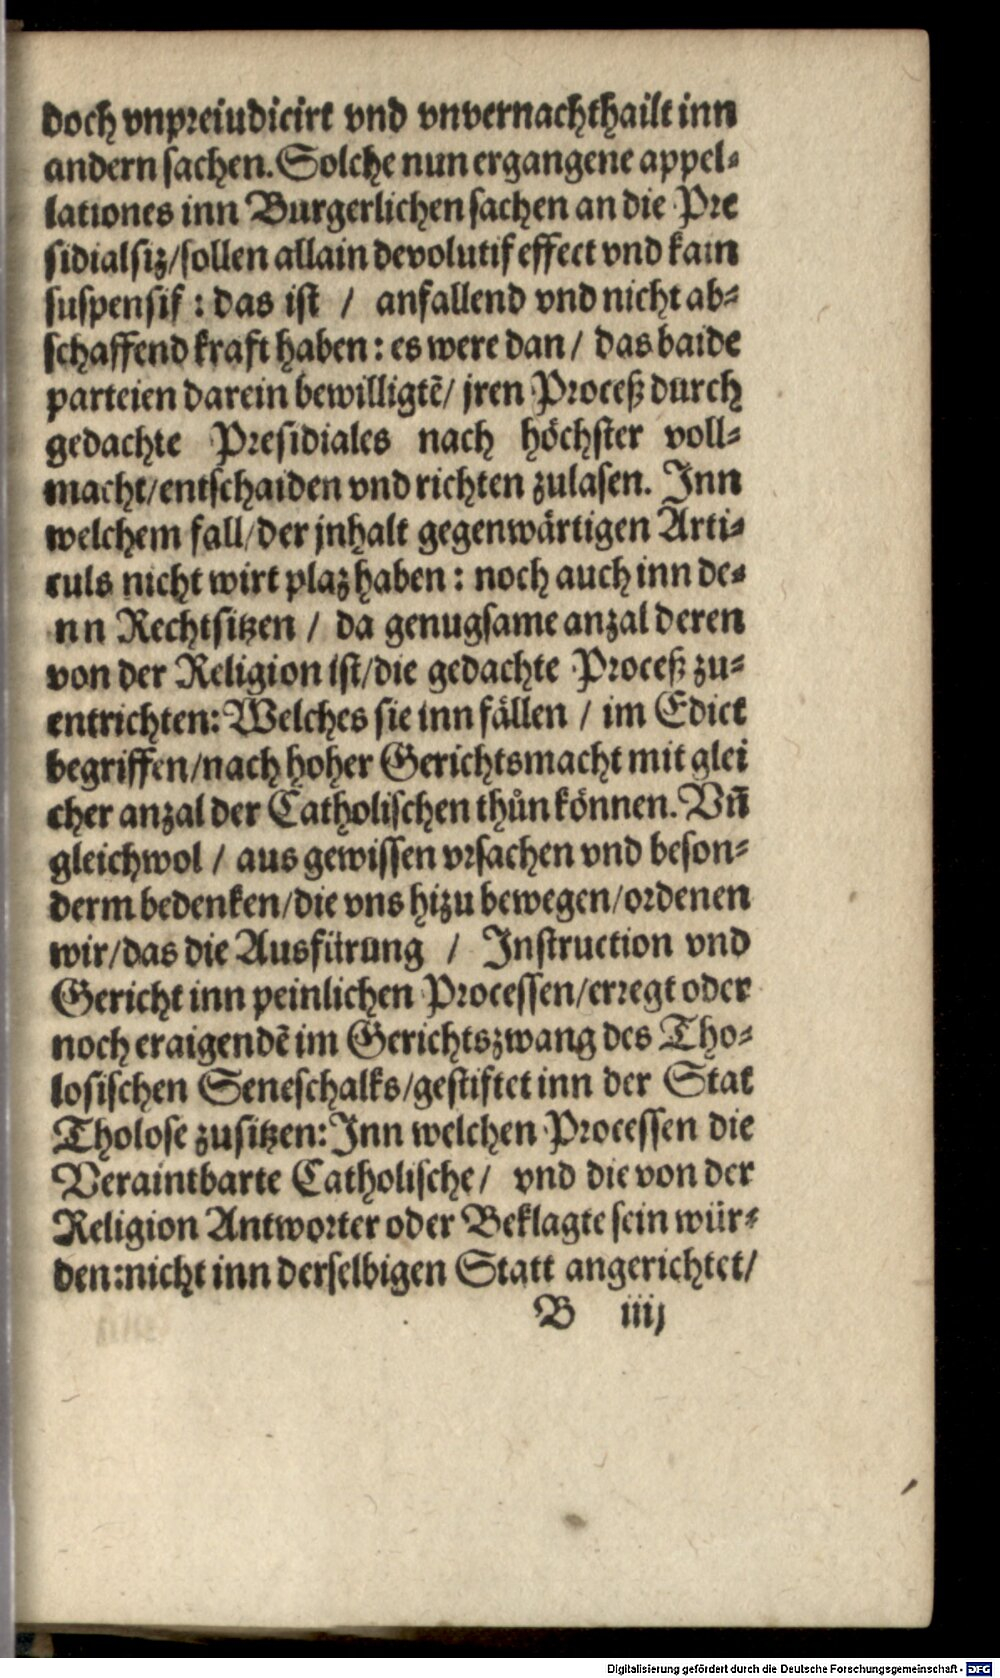 doch vnpreiudicirt vnd vnvernachthailt inn
andern sachen. Solche nun ergangene appel-
lationes inn Burgerlichen sachen an die Pre
sidialsiz/sollen allain devolutif effect vnd kain
suspensif : das ist / anfallend vnd nicht ab-
schaffend kraft haben : es were dan / das baide
parteien darein bewilligtē/ jren Proceß durch
gedachte Presidiales nach höchster voll-
macht/entschaiden vnd richten zulasen. Inn
welchem fall/der jnhalt gegenwärtigen Arti-
culs nicht wirt plaz haben : noch auch inn de-
nn Rechtsitzen / da genugsame anzal deren
von der Religion ist/die gedachte Proceß zu-
entrichten: Welches sie inn fällen / im Edict
begriffen/nach hoher Gerichtsmacht mit glei
cher anzal der Catholischen thůn können. Vñ
gleichwol / aus gewissen vrsachen vnd beson-
derm bedenken/die vns hizu bewegen/ordenen
wir/das die Ausfürung / Instruction vnd
Gericht inn peinlichen Processen/erregt oder
noch eraigendē im Gerichtszwang des Tho-
losischen Seneschalks/gestiftet inn der Stat
Tholose zusitzen: Inn welchen Processen die
Veraintbarte Catholische/ vnd die von der
Religion Antworter oder Beklagte sein wür-
den:nicht inn derselbigen Statt angerichtet/
B iiij
Digitalisierung gefördert durch die Deutsche Forschungsgemeinschaft - DFG